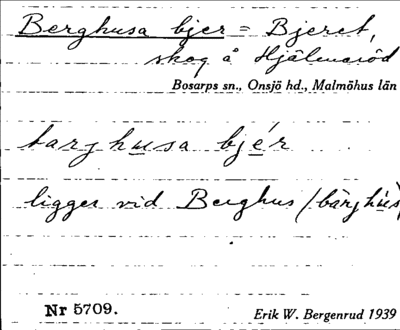 Berghusa bjer = Bjeret,
skog å Hjälmaröd
Bosarps sn., Onsjö hd., Malmöhus län
barjhusa bjér
ligger vid Berghus (bàrjhús)
Nr 5709.
Erik W. Bergenrud 1939